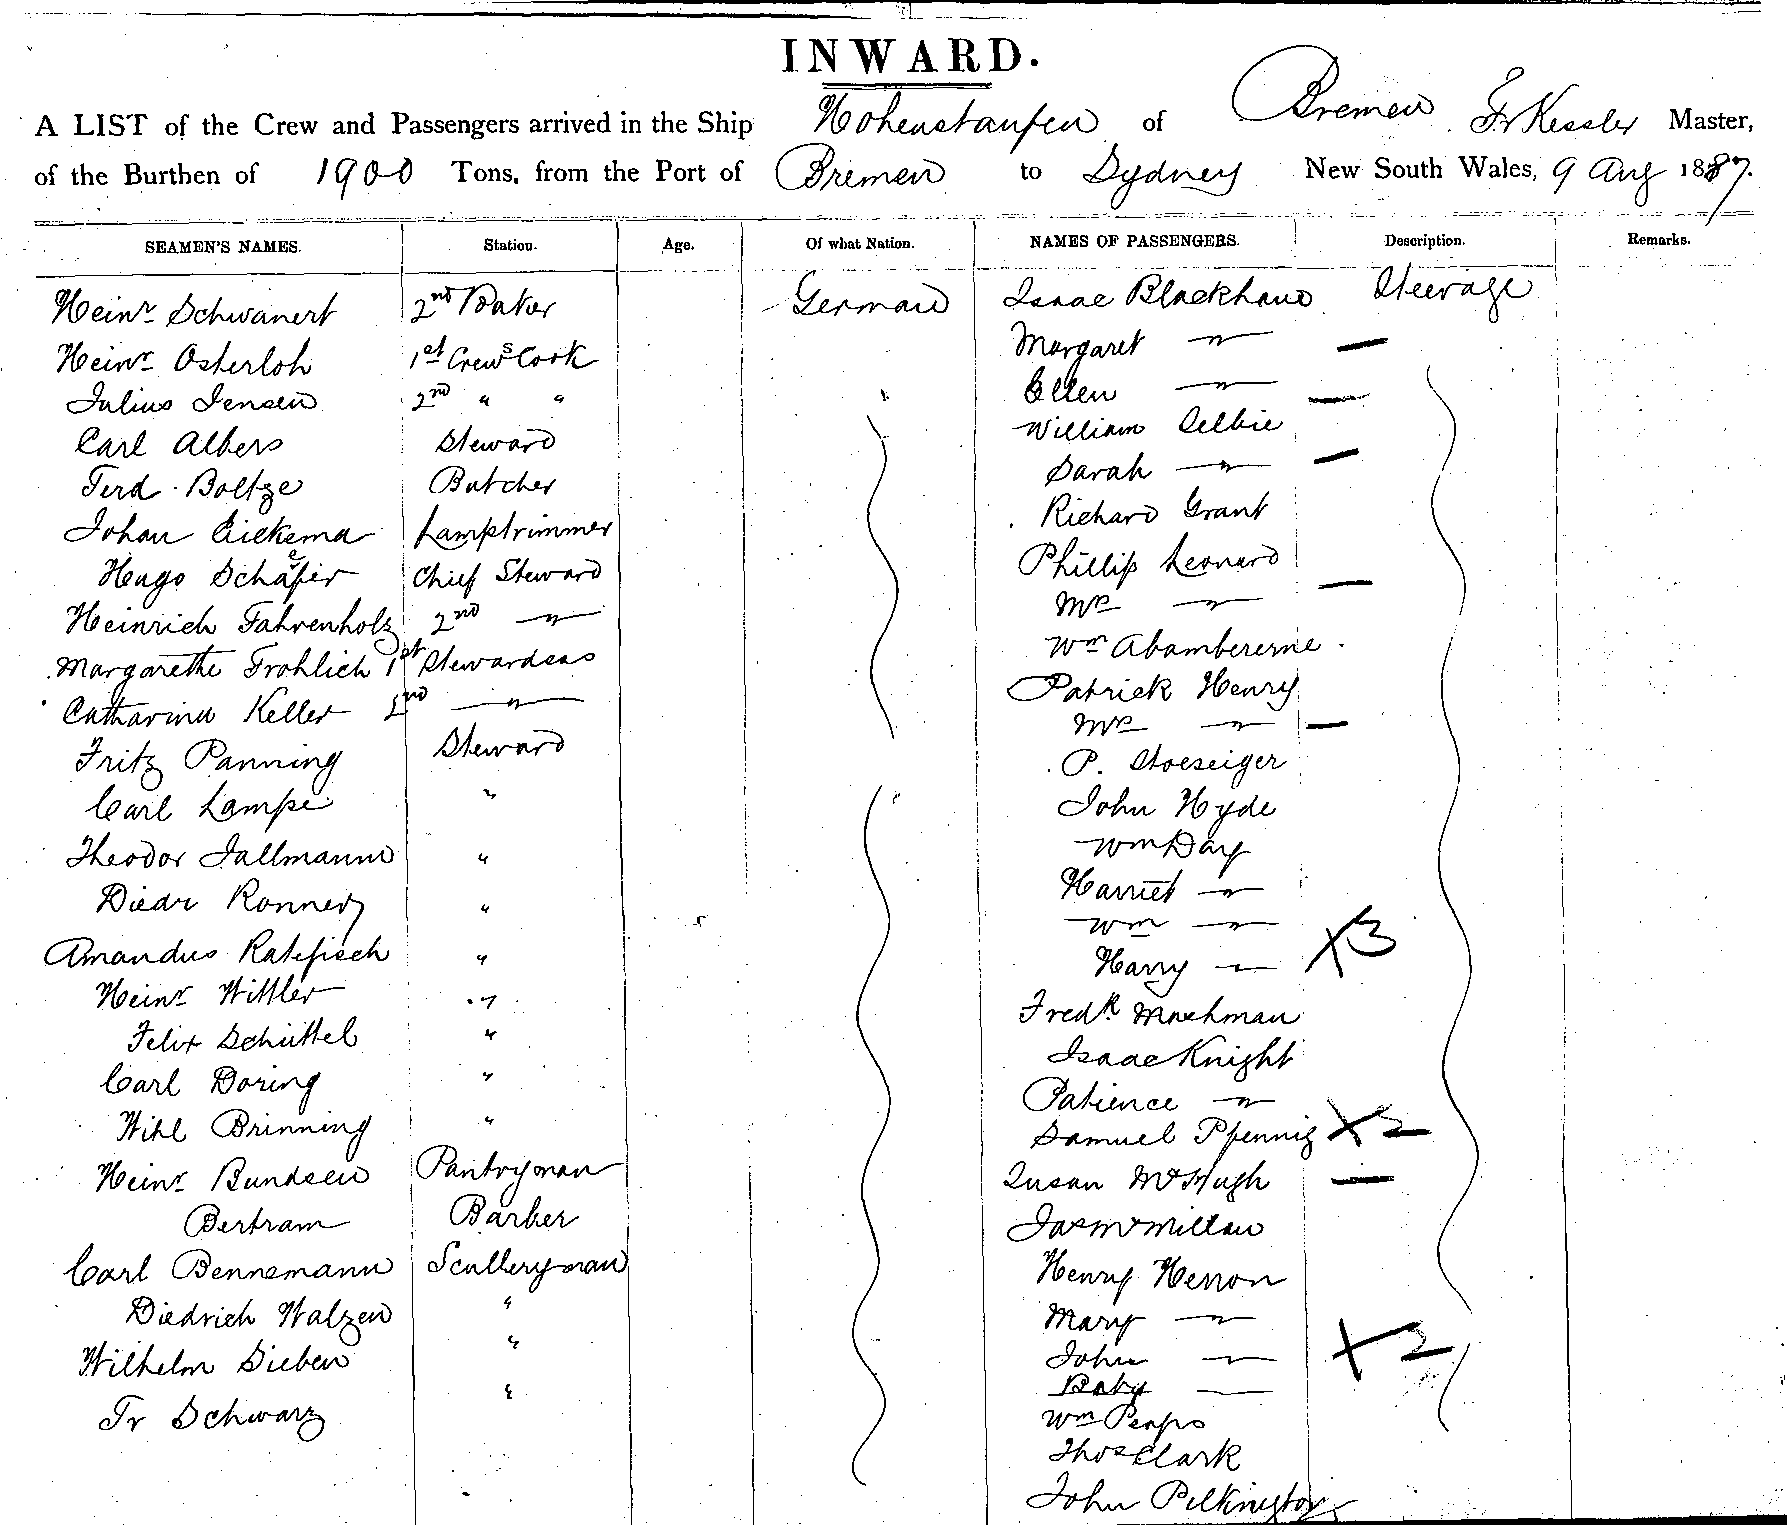 INWARD.
A LIST of the Crew and Passengers arrived in the Ship Hohenstaufen of Bremen Fr Kessler Master,
of the Burthen of 1900 Tons, from the Port of Bremen to Sydney New South Wales, 9 Aug 1887.
SEAMEN'S NAMES. Station. Age. Of what Nation. NAMES OF PASSENGERS. Description. Remarks.
Heinr Schwanert 2nd Baker German Isaac Blackhand Steerage
Margaret "
Heinr Osterloh 1st Crews Cook
Ellen "
Julius Jensen 2nd " "
William Selbie
Carl Albers Steward
Sarah "
Ferd. Boltze Butcher
Richard Grant
Johan Eickema Lamptrimmer
Phillip Leonard
Hugo Schäfer Chief Steward
Mrs "
Heinrich Fahrenholz 2nd "
Wm
Margarethe Frohlich 1st Stewardess
Patrick Henry
Catharina Keller 2nd "
Mrs "
Fritz Panning Steward
P. Stoeseiger
Carl Lampe "
John Hyde
Theodor Tallmann "
Wm Day
Harriet "
Diedr Ronner "
Wm "
Amandus Ratefisch "
Harry " X3
Heinr Wittler "
Fredk Mackman
Felix Schüttel "
Isaac Knight
Carl Doring "
Patience "
Wihl Brinning "
Samuel Pfennig X2
Heinr Bundsen Pantryman
Susan McHugh
Bertram Barber
Jas McMillan
Carl Bennemann Sculleryman
Henry Herron
Diedrich Walzen "
Mary "
Wilhelm Sieben "
John " X2
Baby
Fr Schwarz "
Wm Peaps
Thos Clark
John Pilkington